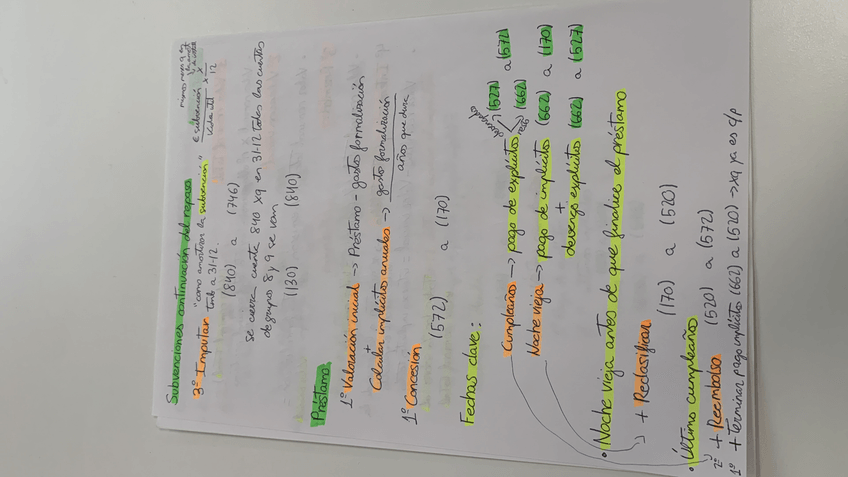 Subvenciones continuación del repaso
3º Imputar "como amortizar la subvención"
tmb a 31-12.
€ subvención x
vida útil x 12
(840) a (746)
se cierra cuenta 840 xq en 31-12 todas las cuentas
de grupos 8 y 9 se van
(1130) (840)
Préstamo:
1º Valoración inicial -> Préstamo - gastos formalización
+
Calcular implícitos anuales -> gastos formalización
años que dura
1º Concesión
(572) a (170)
Fechas clave:
Cumpleaños -> pago de explícitos devengados (527) a (572)
resto (662)
Noche vieja -> pago de implícitos (662) a (170)
+
devengo explícitos (662) a (527)
• Noche vieja antes de que finalice el préstamo
+ Reclasificar
(170) a (520)
• Último cumpleaños
2º + Reembolso (520) a (572)
1º + Terminar pago implícitos (662) a (520) -> xq ya es c/p